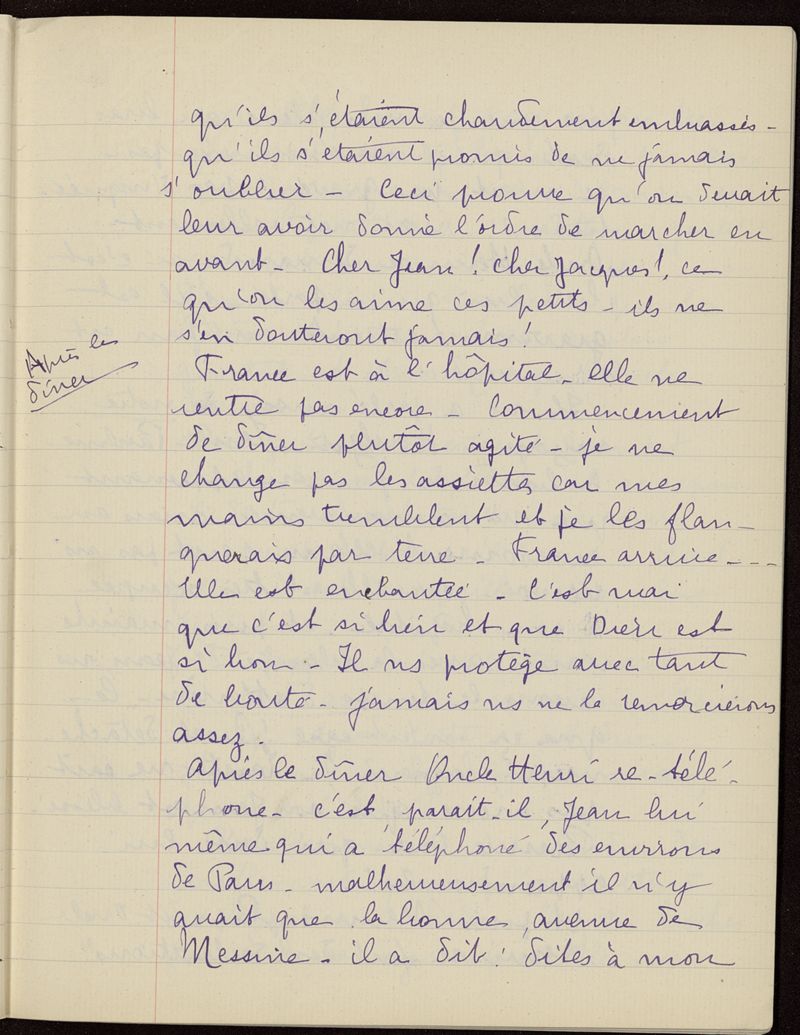 qu'ils s'étaient chaudement embrassés -
qu'ils s'étaient promis de ne jamais
s'oublier - Ceci prouve qu'on devait
leur avoir donné l'ordre de marcher en
avant - Cher Jean ! cher Jacques !, ce
qu'on les aime ces petits - ils ne
s'en douteront jamais !
Après le
dîner
France est à l'hôpital - elle ne
rentre pas encore - Commencement
de dîner plutôt agité - je ne
change pas les assiettes car mes
mains tremblent et je les flan-
querais par terre - France arrive - - -
Elle est enchantée - C'est vrai
que c'est si bien et que Dieu est
si bon - Il ns protège avec tant
de bonté - jamais ns ne le remercierons
assez.
Après le dîner Oncle Henri re-télé-
phone - c'est parait-il, Jean lui
même qui a téléphoné des environs
de Paris - malheureusement il n'y
avait que la bonne, avenue de
Messine - il a dit : dites à mon